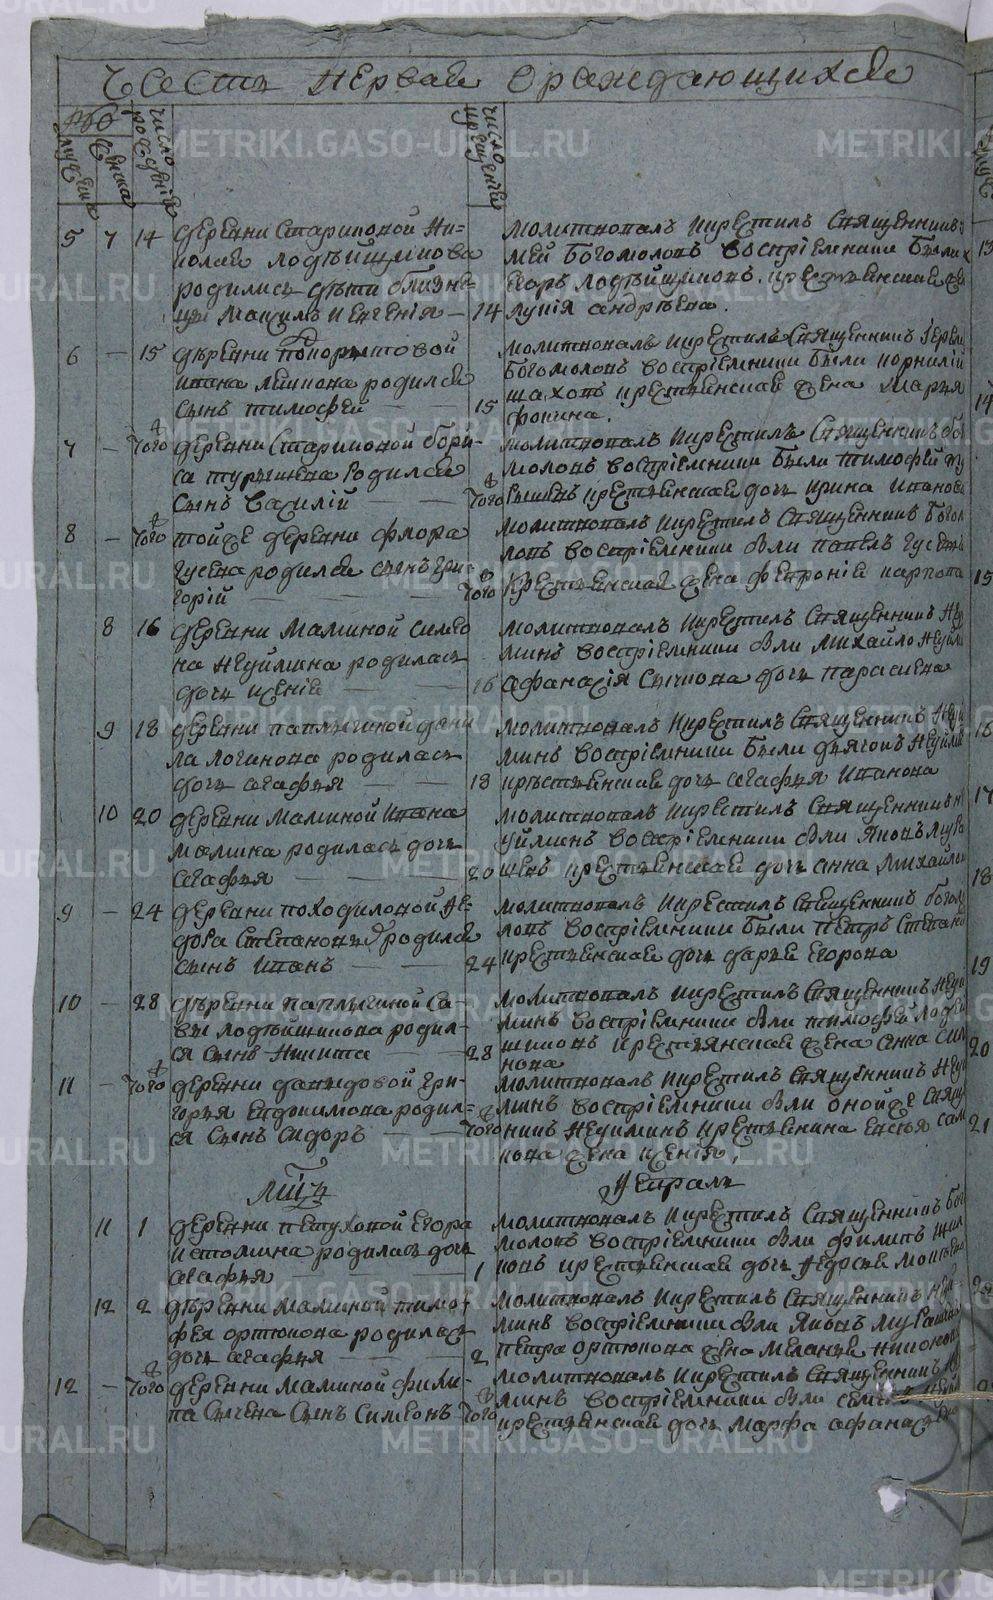 Часть первая ораждающихся
число рождений
мужеска
женска
число крещений
5 7 14 деревни Стариковой Ни-
колая Лодѣйщикова
родились дѣти близне-
цы Максимъ и Евгенія — 14
молитвовалъ и крестилъ Священникъ
мей Богомоловъ воспріемники были
Егоръ Лодѣйщиковъ. крестьянская
лукія андрѣева.
6 — 15 дѣревни
ивана родился
сынъ тимофей — 15
молитвовалъ и крестилъ Священникъ Іереме
Богомоловъ воспріемники были корнилій
крестьянская жена Марья
фокина.
7 — Того ж деревни Стариковой бори-
са турыгина родился
сынъ Василій — Того ж
молитвовалъ и крестилъ Священникъ бо
моловъ воспріемники были тимофей ту
крестьянская дочь ирина иванова
8 — Того ж той же деревни флора
гусева родился сынъ гри-
горій — Того ж
молитвовалъ и крестилъ Священникъ Богом
ловъ воспріемники были павелъ гусевъ
крестьянская жена феѳронія карпова
8 16 деревни Маминой симео
на неуймина родилась
дочь ксенія — 16
молитвовалъ и крестилъ Священникъ Неу
минъ воспріемники были михайло Неуйми
афанасія Сычиова дочь парасковя
9 18 деревни паплыгиной дани
ла логинова родилась
дочь агафья — 18
молитвовалъ и крестилъ Священникъ Неу
минъ воспріемники были дьячокъ Неуйми
крѣстьянская дочь агафья Иванова
10 20 деревни маминой ивана
мамина родилась дочь
агафья — 20
молитвовалъ и крестилъ Священникъ не
уйминъ воспріемники были яковъ мура
шевъ крестьянская дочь анна михайло
9 — 24 деревни походиловой Ѳе-
дора Степановъ родился
сынъ иванъ — 24
молитвовалъ и крестилъ Священникъ богомо
ловъ воспріемники были петръ Степанов
крестьянская дочь дарья Егорова
10 — 28 дѣревни паплыгиной Са-
вы лодѣйщикова родил-
ся сынъ никита — 28
молитвовалъ и крестилъ Священникъ Неуй
минъ воспріемники были тимофей лодѣй
щиковъ крестьянская жена анна
нова
11 — Того ж деревни давыдовой гри-
горья евдокимова родил-
ся сынъ Сидоръ — Того ж
молитвовалъ и крестилъ Священникъ Неуй
минъ воспріемники были оной же Свящ
никъ Неуйминъ крестьянина
жена ксенія,
Мцъ
Февраль
11 1 деревни петуховой Егора
истомина родилась дочь
агафья — 1
молитвовалъ и крестилъ Священникъ бог
моловъ воспріемники были филипъ
ковъ крестьянская дочь Ѳедосья моисѣева
12 2 дѣревни маминой тимо-
фея ортюкова родилась
дочь агафья — 2
молитвовалъ и крестилъ Священникъ неуй
минъ воспріемники были яковъ мурашев
петра ортюкова жена меланья никонова
12 — Того ж деревни маминой фили-
па Сычева Сынъ Симеонъ Того ж
молитвовалъ и крестилъ Священникъ
минъ воспріемники были семенъ
крестьянская дочь марфа афанасьева
13
14
15
16
17
18
19
20
21
METRIKI.GASO-URAL.RU